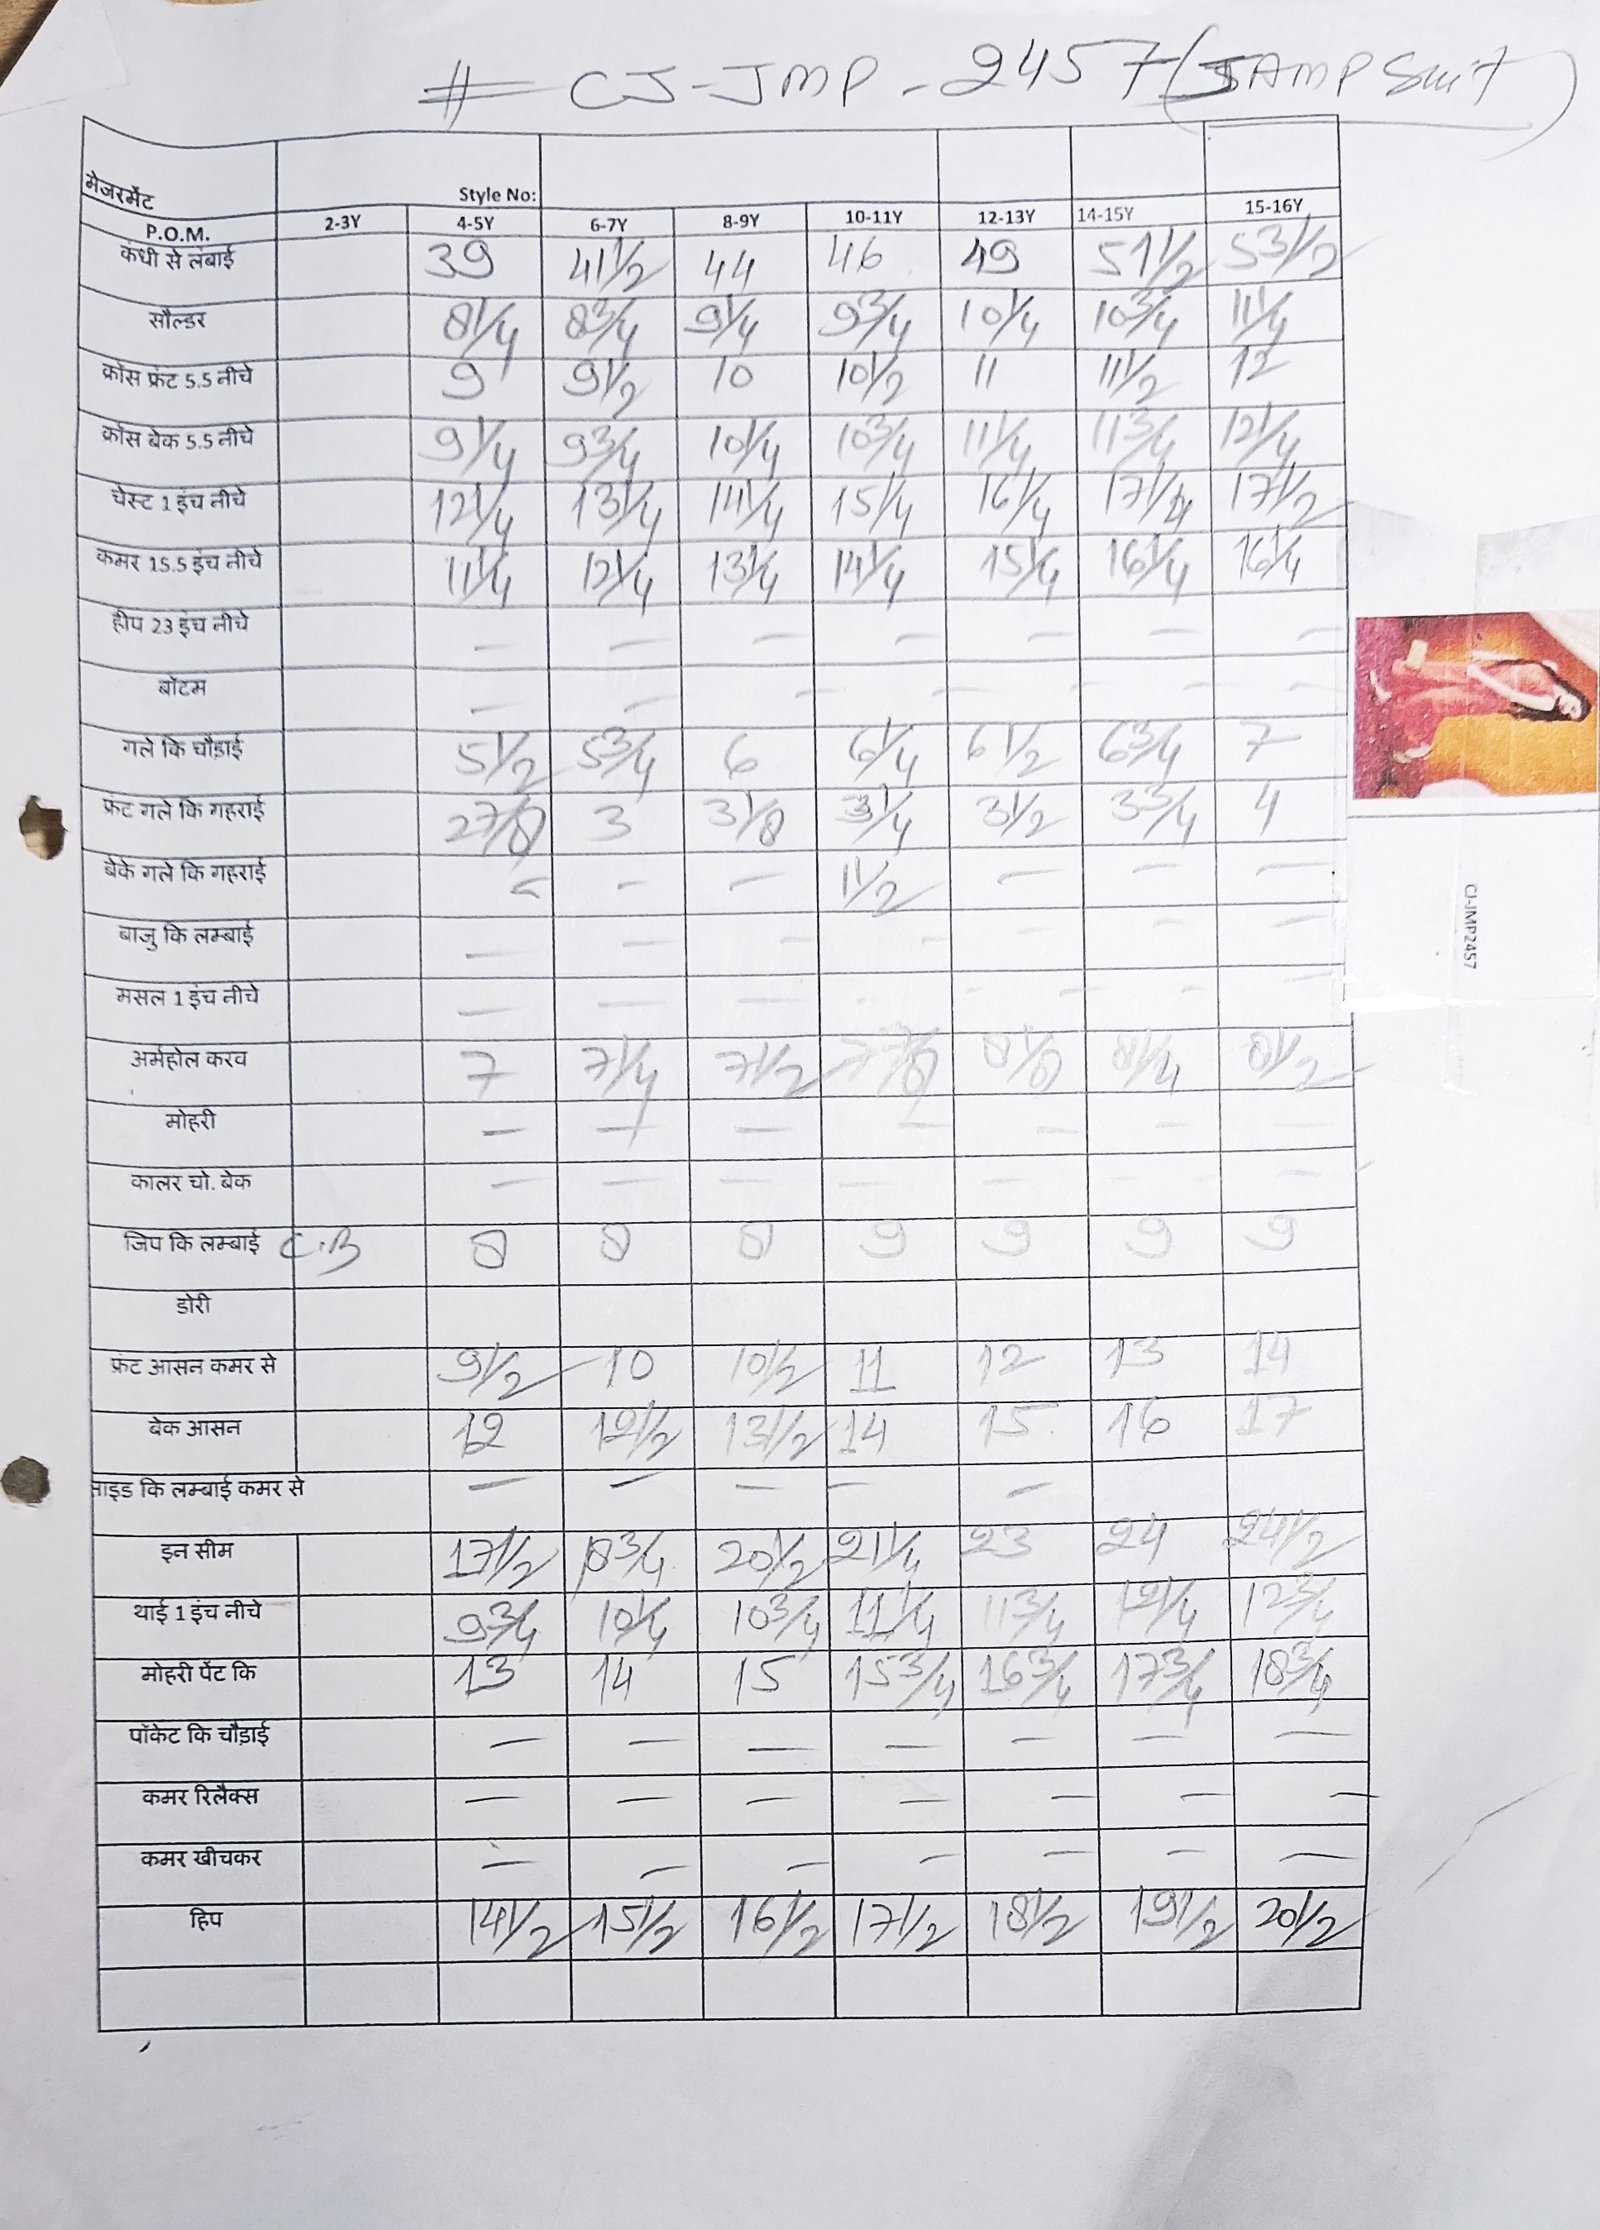 # CJ-JMP-2457 (JAMP Suit)
मेजरमेंट Style No:
P.O.M. 2-3Y 4-5Y 6-7Y 8-9Y 10-11Y 12-13Y 14-15Y 15-16Y
कंधी से लंबाई 39 41 1/2 44 46 49 51 1/2 53 1/2
सौल्डर 8 1/4 8 3/4 9 1/4 9 3/4 10 1/4 10 3/4 11 1/4
क्रॉस फ्रंट 5.5 नीचे 9 9 1/2 10 10 1/2 11 11 1/2 12
क्रॉस बेक 5.5 नीचे 9 1/4 9 3/4 10 1/4 10 3/4 11 1/4 11 3/4 12 1/4
चेस्ट 1 इंच नीचे 12 1/4 13 1/4 14 1/4 15 1/4 16 1/4 17 1/4 17 1/2
कमर 15.5 इंच नीचे 11 1/4 12 1/4 13 1/4 14 1/4 15 1/4 16 1/4 16 1/4
हीप 23 इंच नीचे — — — — — — —
बॉटम — — — — — — —
गले कि चौड़ाई 5 1/2 5 3/4 6 6 1/4 6 1/2 6 3/4 7
फ्रंट गले कि गहराई 2 7/8 3 3 1/8 3 1/4 3 1/2 3 3/4 4
बेके गले कि गहराई — — — 1 1/2 — — —
बाजु कि लम्बाई — — — — — — —
मसल 1 इंच नीचे — — — — — — —
अर्महोल करव 7 7 1/4 7 1/2 7 7/8 8 1/8 8 1/4 8 1/2
मोहरी — — — — — — —
कालर चो. बेक — — — — — — —
जिप कि लम्बाई C.B 8 8 8 9 9 9 9
डोरी
फ्रंट आसन कमर से 9 1/2 10 10 1/2 11 12 13 14
बेक आसन 12 12 1/2 13 1/2 14 15 16 17
साइड कि लम्बाई कमर से — — — — —
इन सीम 17 1/2 18 3/4 20 1/2 21 1/4 23 24 24 1/2
थाई 1 इंच नीचे 9 3/4 10 1/4 10 3/4 11 1/4 11 3/4 12 1/4 12 3/4
मोहरी पेंट कि 13 14 15 15 3/4 16 3/4 17 3/4 18 3/4
पॉकेट कि चौड़ाई — — — — — — —
कमर रिलैक्स — — — — — — —
कमर खीचकर — — — — — — —
हिप 14 1/2 15 1/2 16 1/2 17 1/2 18 1/2 19 1/2 20 1/2
CJ-JMP2457